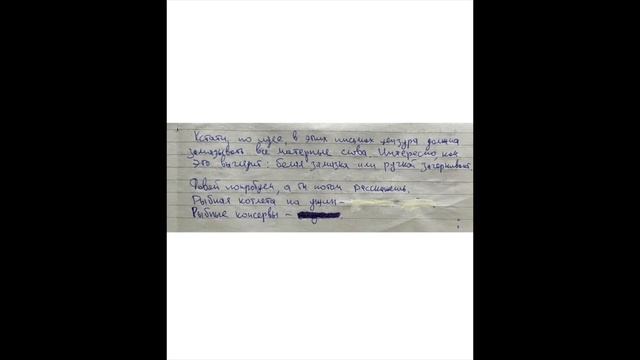 Кстати, по идее в этих письмах цензура должна
замазывать все матерные слова. Интересно как
это выглядит: белая замазка или ручкой зачеркивают.
Давай попробуем, а ты потом расскажешь.
Рыбная котлета на ужин –
Рыбные консервы –